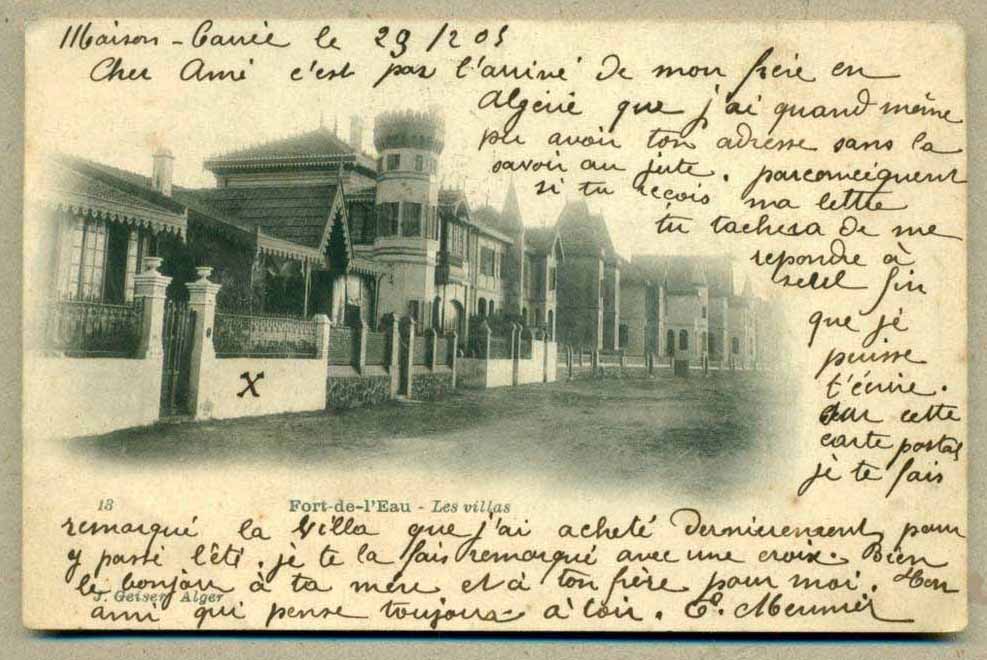 Maison-Carrée le 29/2 05
Cher Ami c'est par l'arrivé de mon frère en
Algérie que j'ai quand même
pu avoir ton adresse sans la
savoir au juste. parconséiquent
si tu reçois ma lettre
tu tachera de me
repondre à
fin
que je
puisse
t'écrire.
Sur cette
carte postal
je te fais
X
13 Fort-de-l'Eau - Les villas
remarqué la Villa que j'ai acheté dernierement pour
y passé l'été. je te la fais remarqué avec une croix. Bien
le bonjour à ta mère et à ton frère pour moi. Ton
J. Geiser, Alger
ami qui pense toujours à toi. E. Meunier